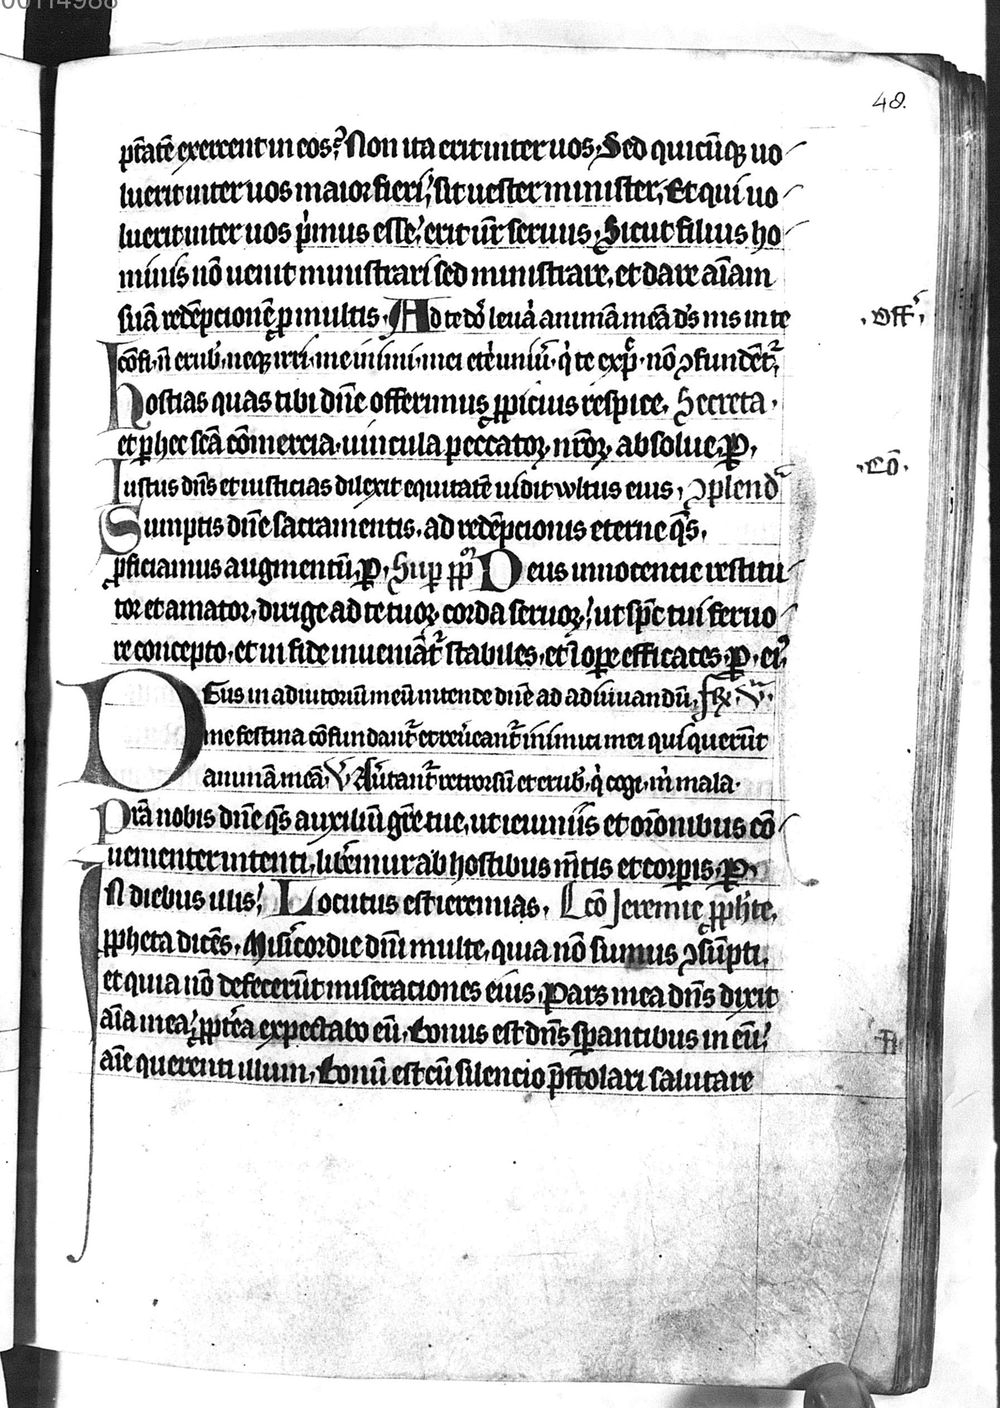 00114988
48.
ptãtẽ exercent in eos? Non ita erit inter uos. Sed quicũqꝫ uo
luerit inter uos maior fieri, sit uester minister. Et qui uo
luerit inter uos p̾mus esse, erit ur̃ seruus. Sicut filius ho
minis nõ uenit ministrari sed ministrare, et dare aĩam
suã redẽpcionẽ ꝑ multis. Ad te dõ leuaui animã meã ds̃ ms in te
.Off̾.
cõfi. ñ erub̾. neqꝫ irri. me inimi. mei eteni uniũ. q̾ te exp̃. nõ ꝯfundẽt̃.
Hostias quas tibi dñe offerimus ꝓpicius respice. Secreta.
et ꝑ hec scã cõmercia. uincula peccatoꝝ. nr̃oꝝ. absolue. P.
.Cõ.
Iustus dñs et iusticias dilexit equitatẽ uidit wltus eius. Ꝯplend̾
Sumptis dñe sacramentis. ad redẽpcionis eterne qs̃.
ꝓficiamus augmentũ. P. Suꝑ pp̃lm Deus innocencie restitu
tor et amator. dirige ad te tuoꝝ corda seruoꝝ. ut sp̃c tui feruo
re concepto. et in fide inueniãt̃ stabiles. et ĩ oꝑe efficaces. P. ei̾
Deus in adiutoriũ meũ intende dñe ad adiuuandũ.
me festina cõfundant̃ et reuereant̃ inimici mei qui querũt
animã meã. V̾. Au̾tant̃ retrorsũ et erub̾. q̾ cogi. m̾ mala.
Prã nobis dñe qs̃ auxiliũ gr̃e tue. ut ieiuniis et or̃onibus cõ
uementer intenti. lib̃emur ab hostibus m̃tis et corꝑis. P.
In diebus illis. Locutus est ieremias. Lc̃õ Jeremie ꝓph̾te.
ꝓpheta dicẽs. Misĩcordie dñi multe. quia nõ sumus ꝯsũpti.
et quia nõ defecerũt miseraciones eius. Pars mea dñs dixit
aĩa mea. ꝓpt̃ea expectabo eũ. Bonus est dñs sꝑantibus in eũ.
aĩe querenti illum. Bonũ est cũ silencio p̃stolari salutare